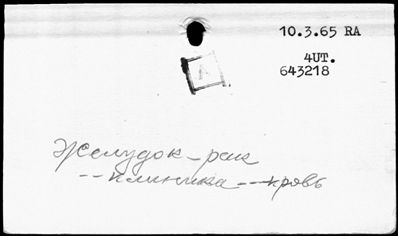 10.3.65 RA
4UT.
643218
A
Желудок-рак
--клиника---кровь